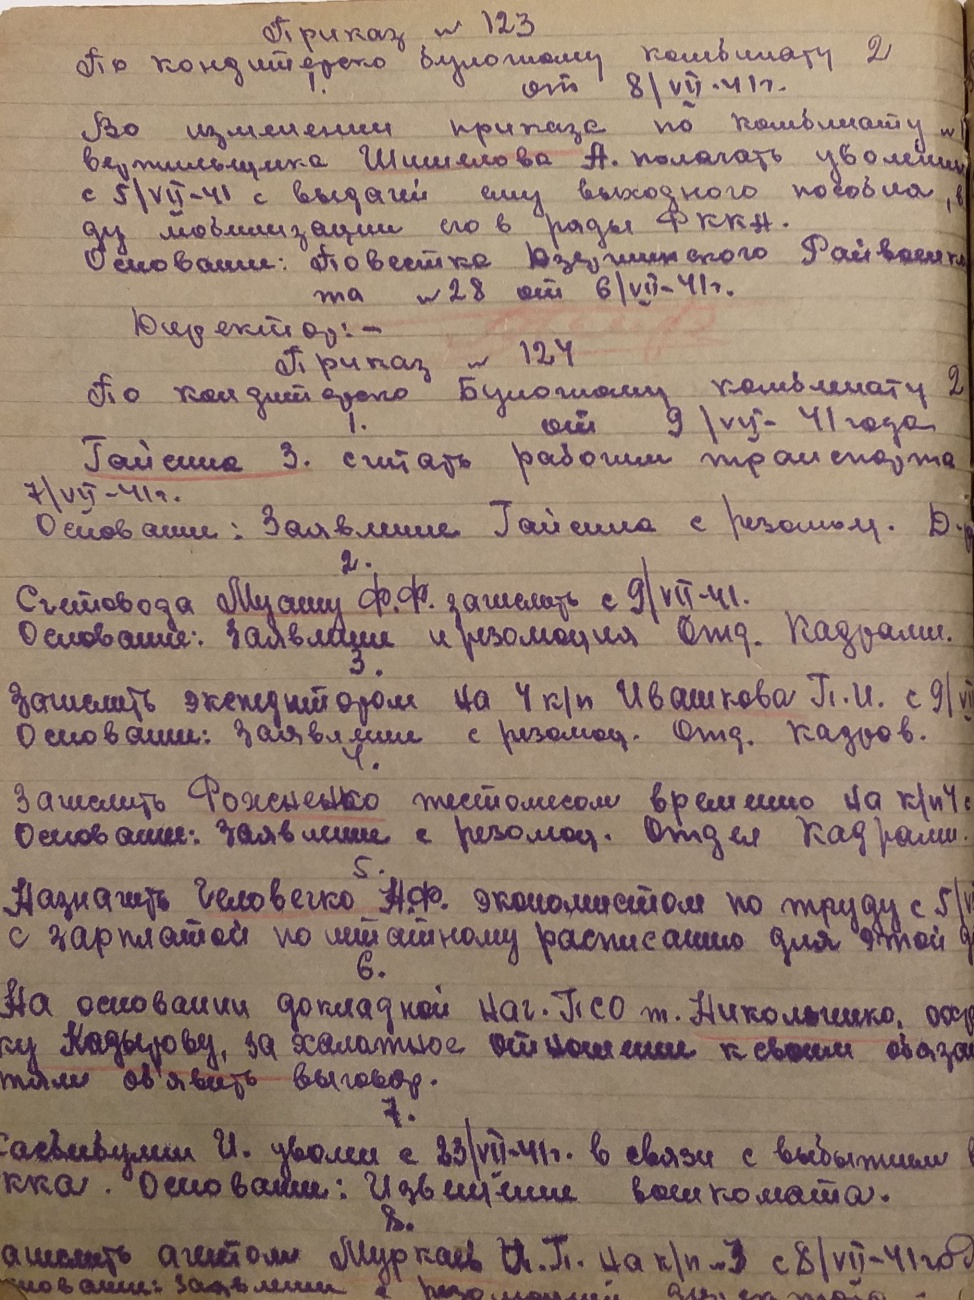 Приказ № 123
По кондитерско булочному комбинату 2
1. от 8/VII-41г.
Во изменении приказа по комбинату №
Шишелова А. полагать уволенным
с 5/VII-41 с выдачей ему выходного пособия, в
ду мобилизации его в ряды РККА.
Основание: Повестка Дзержинского Райвоенко
та № 28 от 6/VII-41г.
Директор:-
Приказ № 124
По кондитерско Булочному комбинату 2
1. от 9/VII-41 года
Гайсина З. считать рабочим транспорта
7/VII-41г.
Основание: Заявление Гайсина с резолюц. Д-р
2.
Счетовода Ф.Ф. зачислить с 9/VII-41.
Основание: Заявление и резолюция Отд. Кадрами.
3.
Зачислить экспедитором на 4 к/п Ивашкова П.И. с 9/VI
Основание: Заявление с резолюц. Отд. Кадров.
4.
Зачислить временно на к/п 4
Основание: Заявление с резолюц. Отдел Кадрами.
5.
Назначить Человечко Н.Ф. экономистом по труду с 5/V
с зарплатой по штатному расписанию для этой д
6.
На основании докладной нач. ПСО т. охр
ку Кадырову, за халатное отношение к своим обязан
тями об'явить выговор.
7.
И. уволен с 23/VII-41г. в связи с выбытием в
кка. Основание: Извещение военкомата.
8.
ачислить агентом Муркаев И.П. на к/п №3 с 8/VII-41год
нование: Заявление с резолюцией